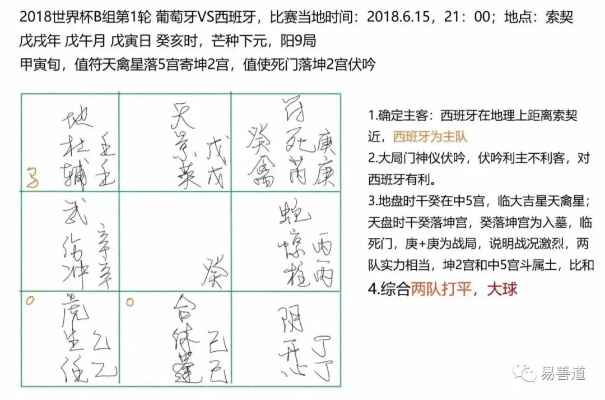 2018世界杯B组第1轮 葡萄牙VS西班牙，比赛当地时间：2018.6.15，21：00；地点：索契
戊戌年 戊午月 戊寅日 癸亥时，芒种下元，阳9局
甲寅旬，值符天禽星落5宫寄坤2宫，值使死门落坤2宫伏吟
地
杜 壬
辅 壬
天
景 戊
英 戊
符
癸 死 庚
禽 芮 庚
武
伤 辛
冲 辛
癸
蛇
惊 丙
柱 丙
虎
生 乙
任 乙
合
休 己
蓬 己
阴
开 丁
心 丁
1.确定主客：西班牙在地理上距离索契
近，西班牙为主队
2.大局门神仪伏吟，伏吟利主不利客，对
西班牙有利。
3.地盘时干癸在中5宫，临大吉星天禽星；
天盘时干癸落坤宫，癸落坤宫为入墓，临
死门，庚+庚为战局，说明战况激烈，两
队实力相当，坤2宫和中5宫斗属土，比和
4.综合两队打平，大球
易善道